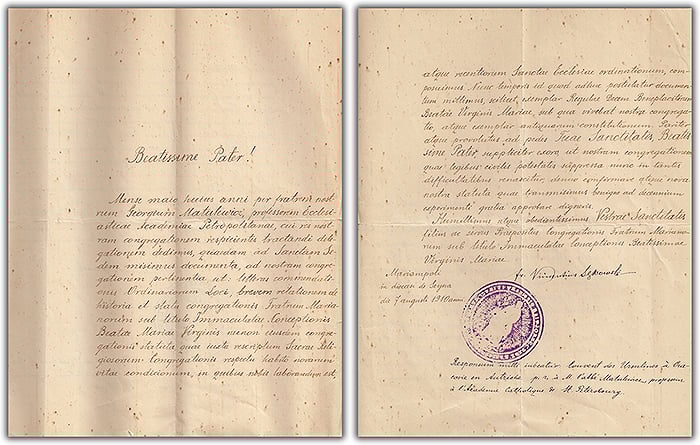 Beatissime Pater!
Mense maio huius anni per fratrem nost
rum Georgium Matulewicz, professorem Ecclesi-
asticae Academiae Petropolitanae, cui res nost
ram congregationem respicientes tractandi dele
gationem dedimus, quaedam ad Sanctam Se
dem misimus documenta, ad nostram congre
gationem pertinentia ut: litteras commendati
onis Ordinariorum loci, brevem relationem de
historia et statu congregationis Fratrum Maria
norum sub titulo Immaculatae Conceptionis
Beatae Mariae Virginis necnon eiusdem congre
gationis statuta quae iuxta rescriptum Sacrae Reli
giosorum Congregationis respectu habito novarum
vitae condicionum, in quibus nobis laborandum est,
atque recentiorum Sanctae Ecclesiae ordinationum, com
posuimus. Nunc temporis id quod adhuc postulatur documen
tum mittimus, scilicet, exemplar Regulae Decem Beneplacitorum
Beatae Virginis Mariae, sub qua vivebat nostra congrega
tio, atque exemplar antiquarum constitutionum. Pariter
atque provolutus ad pedes Tuae Sanctitatis Beatis
sime Pater suppliciter exoro, ut nostram congregationem
quae legibus civilis potestatis suppressa nunc in tantis
difficultatibus renascitur, denuo confirmare atque nova
nostra statuta quae transmisimus benigne ad decennium
experimenti gratia approbare digneris.
Humillimus atque obedientissimus Vestrae Sanctitatis
filius ac servus Praepositus Congregationis Fratrum Mariano
rum sub titulo Immaculatae Conceptionis Beatissimae
Virginis Mariae
Mariampoli
in dioecesi de Seyna
da 7 augusti 1910 anni
fr. Vincentius Sękowski
Responsum mitti iubeatur Couvent des Ursulines à Cra
covie en Autriche p. r. à M. l'abbé Matulewicz, professeur
à l'Académie Catholique de St. Pétersbourg.